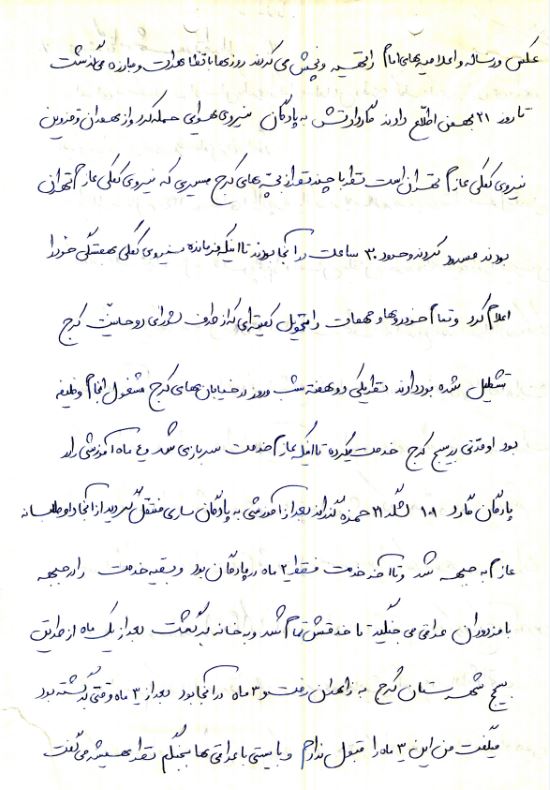 عکس و رساله و اعلامیه‌های امام را تهیه و پخش می‌کردند روزها با تظاهرات و مبارزه می‌گذشت
تا روز ۲۱ بهمن اطلاع دادند گارد ارتش به پادگان نیروی هوایی حمله کرد و از همدان و قزوین
نیروی کمکی عازم تهران است تقدیر با چند نفر از بچه‌های کرج مسیری که نیروی کمکی عازم تهران
بودند مسدود کردند و حدود ۳۰ ساعت در آنجا بودند تا اینکه فرمانده نیروی کمکی همبستگی خود را
اعلام کرد و تمام خودروها و مهمات را تحویل کمیته‌ای که از طرف شورای روحانیت کرج
تشکیل شده بود دادند یکی دو هفته شب و روز در خیابان‌های کرج مشغول انجام وظیفه
بود او مدتی در بسیج کرج خدمت میکرد تا اینکه عازم خدمت سربازی شد و ۴ ماه آموزشی را در
پادگان ۱۰۱ لشگر ۲۱ حمزه گذراند بعد از آموزشی به پادگان ساری منتقل گردید از آنجا داوطلبانه
عازم به جبهه شد و تا آخر خدمت فقط ۲ ماه در پادگان بود و بقیه خدمت را در جبهه
با مزدوران عراقی می‌جنگید تا خدمتش تمام شد و به خانه برگشت بعد از یک ماه از طریق
بسیج شهرستان کرج به زاهدان رفت و ۳ ماه در آنجا بود بعد از ۳ ماه وقتی برگشته بود
میگفت من این ۳ ماه را قبول ندارم و بایستی با عراقی‌ها بجنگم همیشه می‌گفت